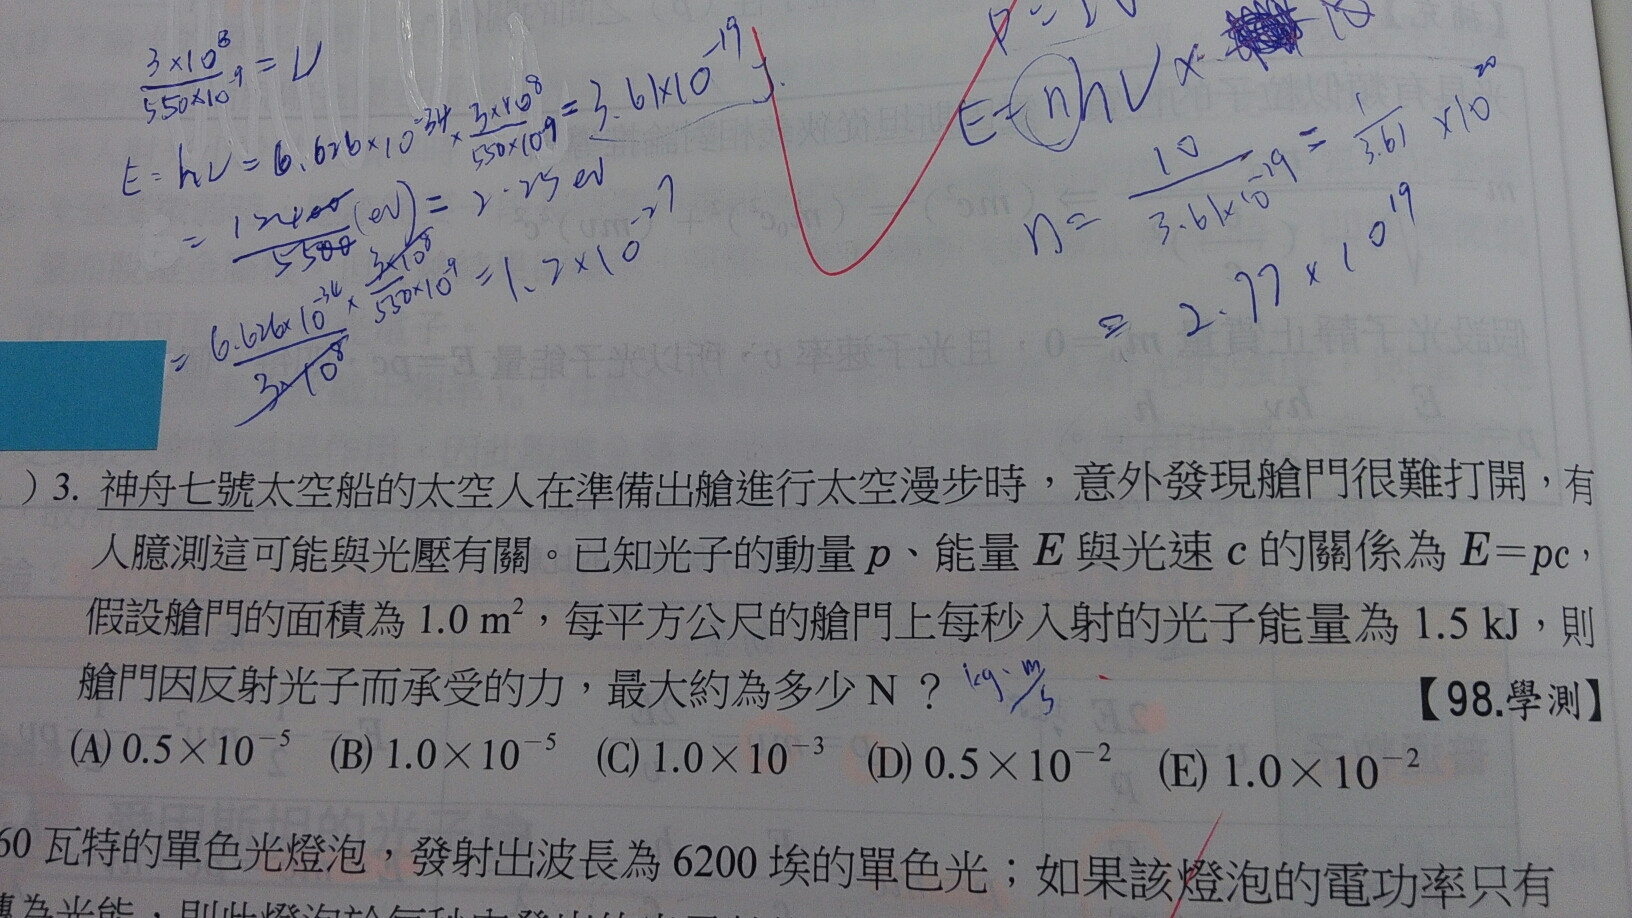 3×10⁸/550×10⁻⁹ = ν
E = hν = 6.626×10⁻³⁴ × 3×10⁸/550×10⁻⁹ = 3.61×10⁻¹⁹ J.
= 12400/5500 (eV) = 2.25 eV
= 6.626×10⁻³⁴ × 3×10⁸/550×10⁻⁹ / 3×10⁸ = 1.2×10⁻²⁷
E = nhν
n = 10/3.61×10⁻¹⁹ = 1/3.61 ×10²⁰
= 2.77×10¹⁹
)3. 神舟七號太空船的太空人在準備出艙進行太空漫步時,意外發現艙門很難打開,有
人臆測這可能與光壓有關。已知光子的動量 p、能量 E 與光速 c 的關係為 E=pc,
假設艙門的面積為 1.0 m²,每平方公尺的艙門上每秒入射的光子能量為 1.5 kJ,則
艙門因反射光子而承受的力,最大約為多少 N? kg·m/s 【98.學測】
(A) 0.5×10⁻⁵ (B) 1.0×10⁻⁵ (C) 1.0×10⁻³ (D) 0.5×10⁻² (E) 1.0×10⁻²
60 瓦特的單色光燈泡,發射出波長為 6200 埃的單色光;如果該燈泡的電功率只有